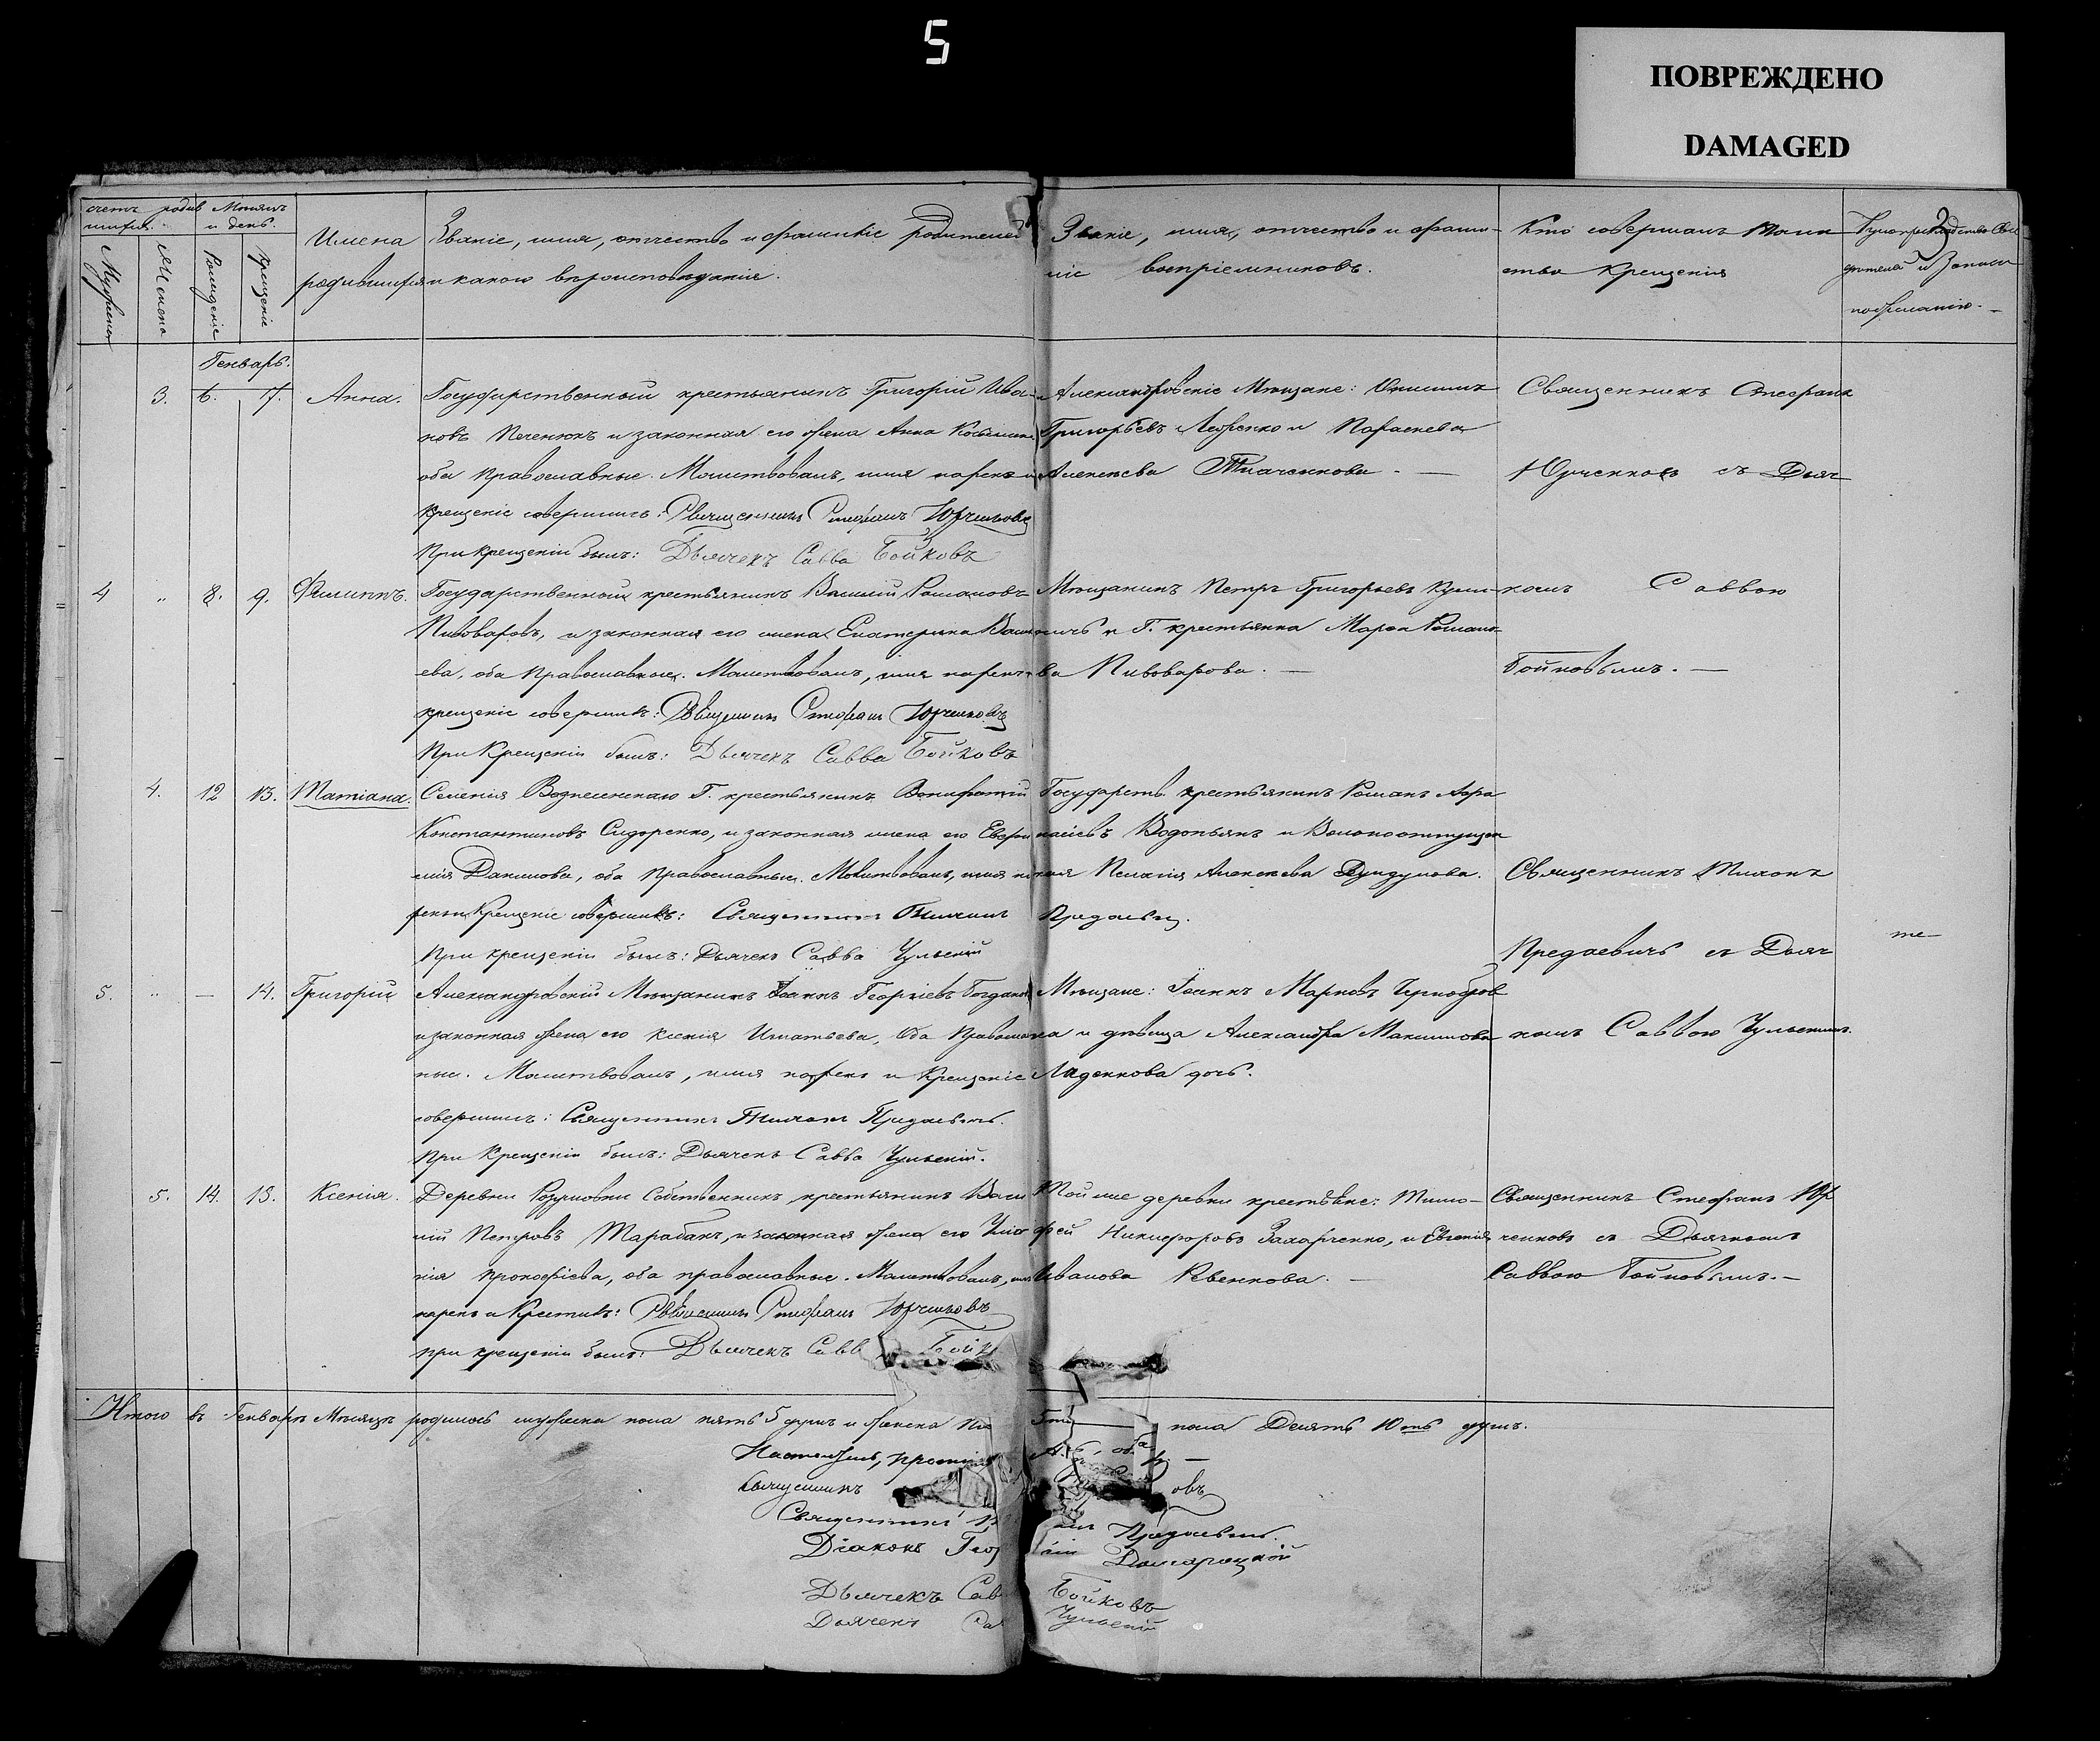 5
ПОВРЕЖДЕНО
DAMAGED
3
счетъ родив
шихся.
Мѣсяцъ
и день.
Мужеска
Женска
Рожденіе
Крещеніе
Имена
родившихся
Званіе, имя, отчество и фамиліе родителей
и какого вѣроисповѣданія.
Званіе, имя, отчество и фами-
ліе воспріемниковъ.
Кто совершалъ таин
ство Крещенія
Генварь.
3. 6. 7. Анна.
Государственный крестьянинъ Григорій Ива-
новъ Печенюкъ и законная его жена Анна
оба православные. Молитвовалъ, имя нарекъ и
крещеніе совершилъ: Священникъ Стефанъ Юрченковъ
При крещеніи былъ: Дьячекъ Савва Бойковъ
Александровскіе Мѣщане:
Григорьевъ и
Алексѣева Ткаченкова. —
Священникъ Стефанъ
Юрченковъ съ Дьяч
4 „ 8. 9. Филиппъ.
Государственный крестьянинъ Василій Романовъ
Пивоваровъ, и законная его жена Екатерина Васи
ева, оба Православные. Молитвовалъ, имя нарекъ
крещеніе совершилъ: Священникъ Стефанъ Юрченковъ
При Крещеніи былъ: Дьячекъ Савва Бойковъ
Мѣщанинъ Петръ Григорьевъ
и Г. крестьянка Марѳа Романо-
ва Пивоварова. —
комъ Саввою
Бойковымъ. —
4. 12 13. Татіана.
Селенія Вознесенскаго Г. крестьянинъ Вонифатій
Константиновъ Сидоренко, и законная жена его Евфи
мія Данилова, оба Православные. Молитвовалъ, имя на
рекъ и Крещеніе совершилъ: Священникъ Тихонъ
При крещеніи былъ: Дьячекъ Савва Чульскій
Государств. крестьянинъ Романъ Аѳа
насіевъ Водопьянъ и Вольноотпущен
ная Пелагія Алексѣева Дундукова.
Предаевич.
Священникъ Тихонъ
Предаевичъ съ Дьяч
5. „ — 14. Григорій
Александровскій Мѣщанинъ Іоаннъ Георгіевъ Богдано
и законная жена его Ксенія Игнатьева, Оба Православ
ные. Молитвовалъ, имя нарекъ и Крещеніе
совершилъ: Священникъ Тихонъ Предаевичъ.
При Крещеніи былъ: Дьячекъ Савва Чульскій.
Мѣщане: Іоаннъ Марковъ Чернобров
ка и дѣвица Александра Максимова
Ладенкова дочь.
комъ Саввою Чульскимъ.
5. 14. 18. Ксенія.
Деревни Собственникъ крестьянинъ Васи
лій Петровъ Тарабанъ, и законная жена его Уліа
нія Прокофіева, оба православные. Молитвовалъ, имя
нарекъ и Крестилъ: Священникъ Стефанъ Юрченковъ
при крещеніи былъ: Дьячекъ Савв Бойк
Той же деревни крестьяне: Тимо-
фей Никифоровъ Захарченко, и Евгенія
Иванова Ревенкова. —
Священникъ Стефанъ Юр
ченковъ съ Дьячкомъ
Саввою Бойковымъ. —
Итого въ Генварѣ Мѣсяцѣ родилось мужеска пола пять 5 душъ и женска пола Десять 10ть душъ.
Настоятель,
Священникъ овъ
Священникъ Предаевичъ.
Діаконъ
Дьячекъ Сав Бойковъ
Дьячекъ Са Чульскій